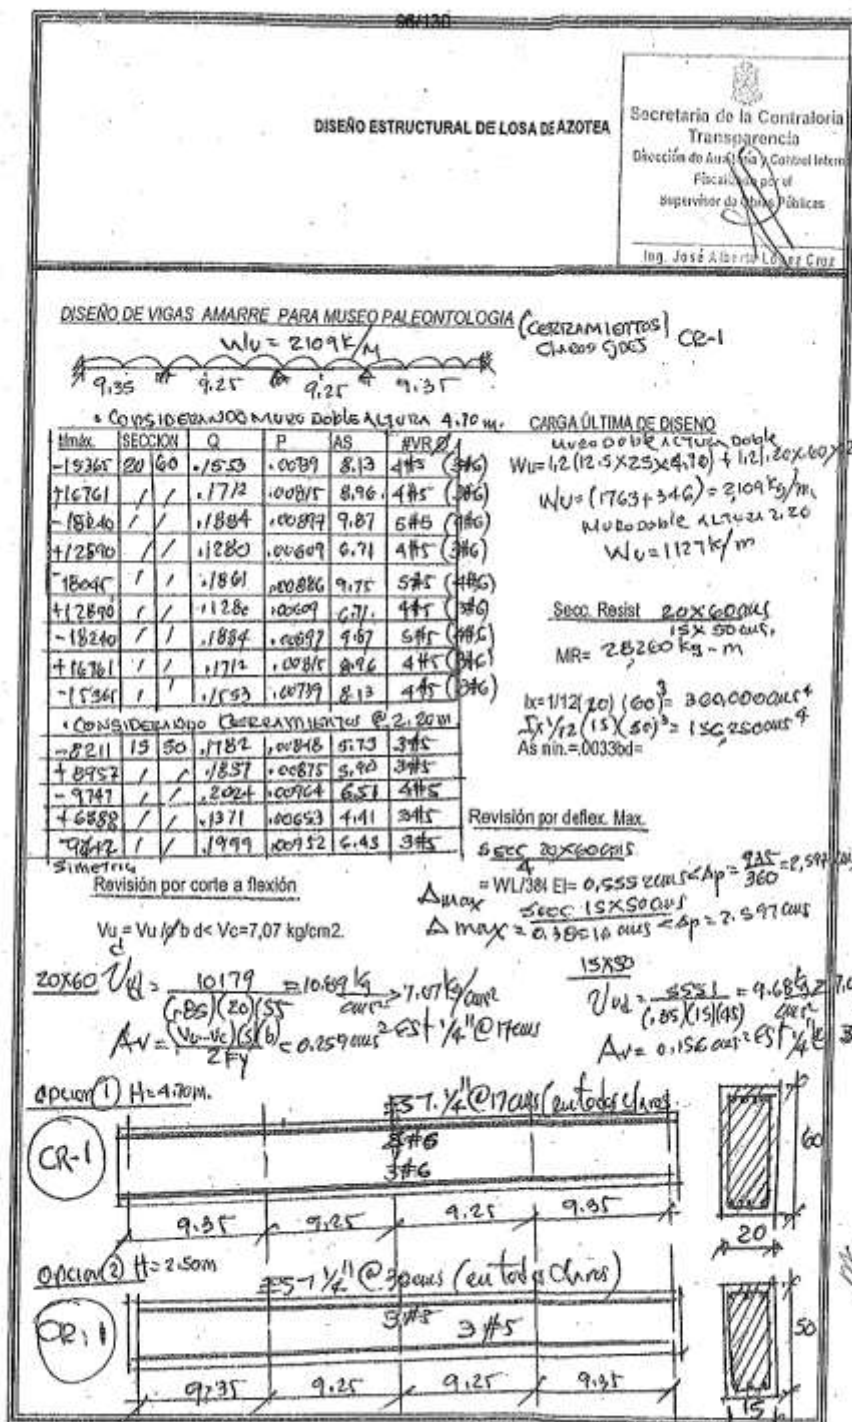 96/130
DISEÑO ESTRUCTURAL DE LOSA DE AZOTEA
Secretaria de la Contraloria
Transparencia
Dirección de Auditoría y Control Intern
Fiscalizado por el
Supervisor de Obras Públicas
Ing. José Alberto López Cruz
DISEÑO DE VIGAS AMARRE PARA MUSEO PALEONTOLOGIA (CERRAMIENTOS)
CR-1
Wu = 2109 K/M
9.35 9.25 9.25 9.35
• CONSIDERANDO MURO DOBLE ALTURA 4.70 m.
Mmáx. SECCION Q P AS #VR Ø
-15365 20 60 .1553 .00739 8.13 4#5 (3#6)
+16761 / / .1712 .00815 8.96 4#5 (3#6)
-18240 / / .1884 .00897 9.87 5#5 (4#6)
+12890 / / .1280 .00609 6.71 4#5 (3#6)
-18045 / / .1861 .00886 9.75 5#5 (4#6)
+12890 / / .1280 .00609 6.71 4#5 (3#6)
-18240 / / .1884 .00897 9.87 5#5 (4#6)
+16761 / / .1712 .00815 8.96 4#5 (3#6)
-15365 / / .1553 .00739 8.13 4#5 (3#6)
• CONSIDERANDO CERRAMIENTOS @ 2.20 m
-8211 15 50 .1782 .00848 5.73 3#5
+8957 / / .1837 .00875 5.90 3#5
-9747 / / .2024 .00964 6.51 4#5
+6888 / / .1371 .00653 4.41 3#5
-9642 / / .1999 .00952 6.43 3#5
Simetria
CARGA ÚLTIMA DE DISENO
MURO DOBLE ALTURA DOBLE
Wu=1.2(12.5X25X4.70) + 1.2(.20X.60X2
Wu=(1763+346)=2,109 Kg/m,
MURO DOBLE ALTURA 2.20
Wu=1127 K/m
Secc. Resist 20X60 cms
15X50 cms,
MR= 28260 kg-m
Ix=1/12(20)(60)³= 360,000 cms⁴
Ix 1/12(15)(50)³= 156,250 cms⁴
As nin.=.0033bd=
Revisión por deflex. Max.
Secc 20X60 cms
Δmax = WL⁴/384 EI= 0,5552 cms<Δp= 935/360 =2,597 cms
Secc 15X50 cms
<Δp= 2.597 cms
Revisión por corte a flexión
Vu = Vu /ø b d< Vc=7,07 kg/cm2.
20X60 Vud = 10179/(.85)(20)(55 =10.89 kg/cms²>7.07 kg/cms²
Av = (Vu-Vc)(S)(b)/2Fy = 0.259 cms² EST 1/4"@17 cms
15X50
Vud = 5551/(.85)(15)(45) = 9.68 kg/cms²
Av = 0.156 cms² EST 1/4"@ 3
OPCION (1) H=4.70m.
EST. 1/4"@17 cms (en todos claros
CR-1
3#6
3#6
9.35 9.25 9.25 9.35
60
20
OPCION (2) H=2.50m
EST 1/4"@30 cms (en todos Claros)
CR-1
3#5 3#5
9.35 9.25 9.25 9.35
50
15